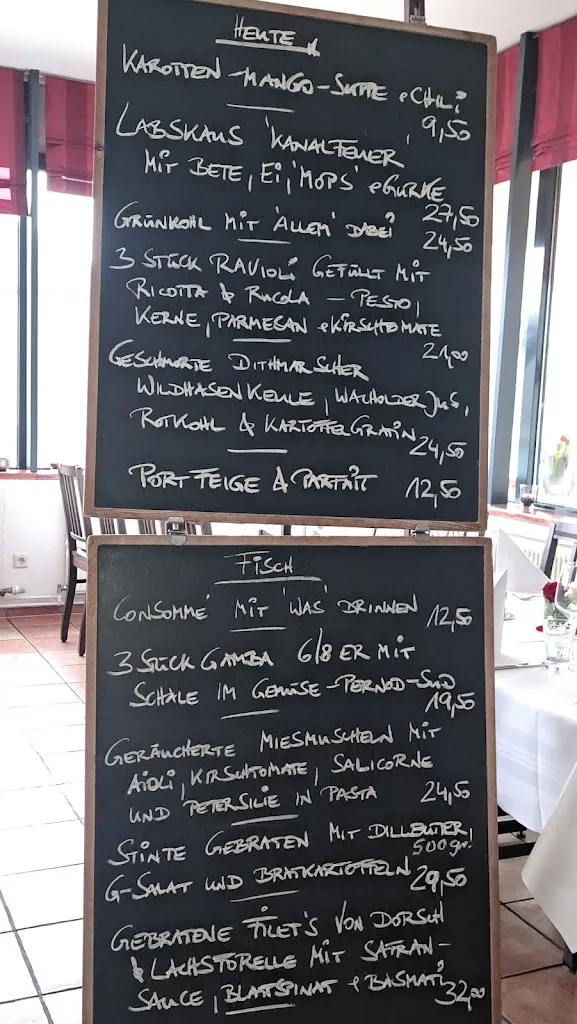 HEUTE
KAROTTEN-MANGO-SUPPE & CHILI
9,50
LABSKAUS 'KANALFEUER'
MIT BETE, EI, 'MOPS' & GURKE
27,50
GRÜNKOHL MIT 'ALLEM' DABEI
24,50
3 STÜCK RAVIOLI GEFÜLLT MIT
RICOTTA & RUCOLA - PESTO,
KERNE, PARMESAN & KIRSCHTOMATE
21,00
GESCHMORTE DITHMARSCHER
WILDHASENKEULE, WACHOLDERJUS,
ROTKOHL & KARTOFFELGRATIN
24,50
PORTFEIGE & PARFAIT 12,50
FISCH
CONSOMMÉ MIT 'WAS' DRINNEN 12,50
3 STÜCK GAMBA 6/8 ER MIT
SCHALE IM GEMÜSE-PERNOD-SUD
19,50
GERÄUCHERTE MIESMUSCHELN MIT
AIOLI, KIRSCHTOMATE, SALICORNE
UND PETERSILIE IN PASTA 24,50
STINTE GEBRATEN MIT DILLBUTTER,
500gr.
G-SALAT UND BRATKARTOFFELN 29,50
GEBRATENE FILET'S VON DORSCH
& LACHSFORELLE MIT SAFRAN-
SAUCE, BLATTSPINAT & BASMATI 32,00